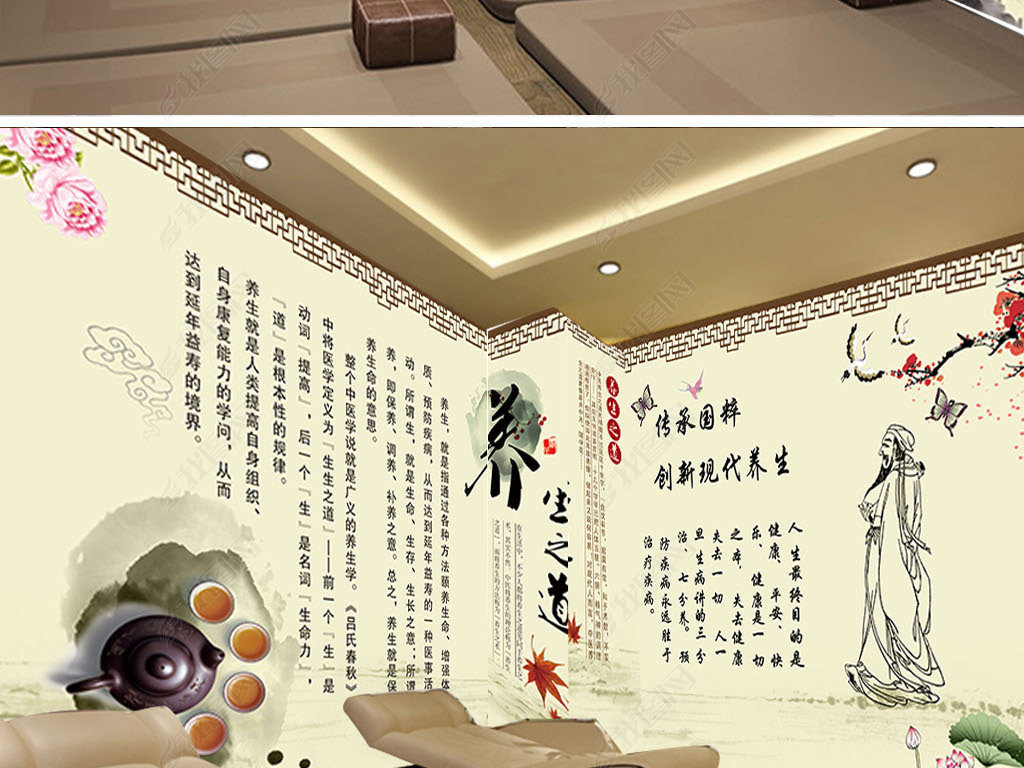 养生，就是指通过各种方法颐养生命、增强体
质、预防疾病，从而达到延年益寿的一种医事活
动。所谓生，就是生命、生存、生长之意；所谓
养，即保养、调养、补养之意。总之，养生就是保
养生命的意思。
整个中医学说就是广义的养生学。《吕氏春秋》
中将医学定义为『生生之道』——前一个『生』是
动词『提高』，后一个『生』是名词『生命力』，
『道』是根本性的规律。
养生就是人类提高自身组织、
自身康复能力的学问，从而
达到延年益寿的境界。
养
生之道
养生之道
传承国粹
创新现代养生
人生最终目的是
健康、平安、快
乐，健康是一切
之本，失去健康
失去一切 人一
旦生病讲的三分
治、七分养。预
防疾病永远胜于
治疗疾病。